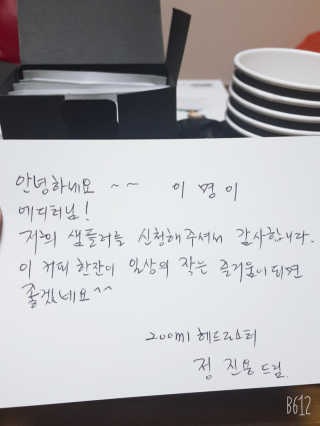 안녕하세요 ~~ 이명이
에디터님!
저희 샘플러를 신청해 주셔서 감사합니다.
이 커피 한잔이 일상의 작은 즐거움이 되면
좋겠네요^^
200ml 헤드로스터
정진용 드림.
B612